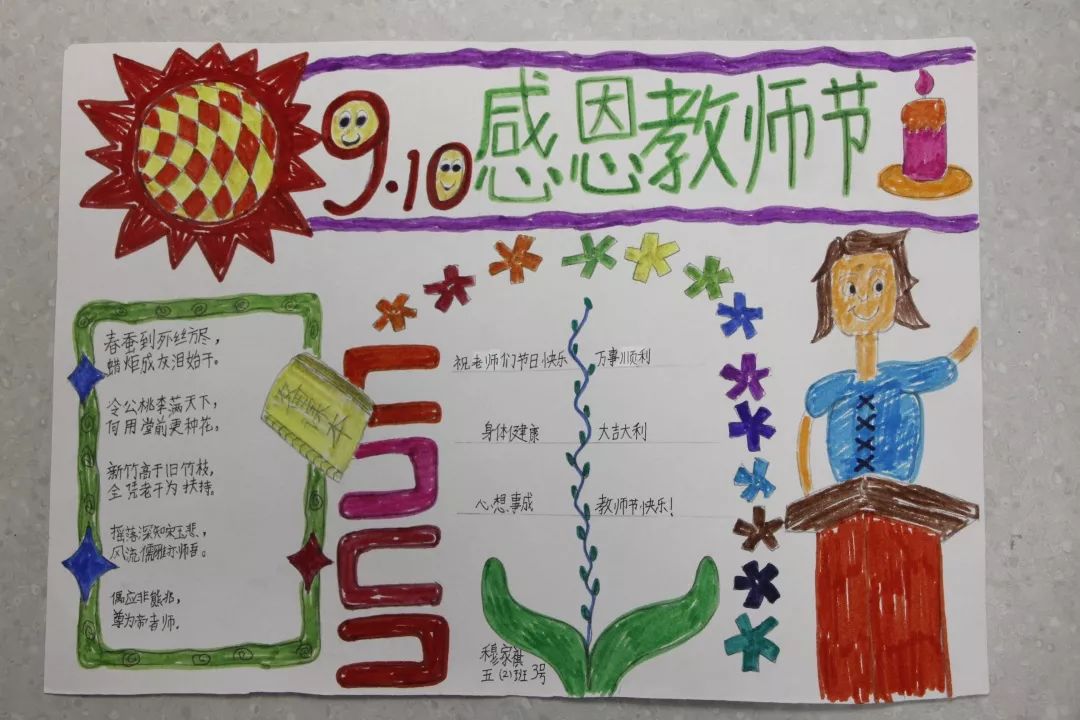 9.10 感恩教师节
春蚕到死丝方尽,
蜡炬成灰泪始干。
令公桃李满天下,
何用堂前更种花。
新竹高于旧竹枝,
全凭老干为扶持。
摇落深知宋玉悲,
风流儒雅亦师吾。
偶应非熊兆,
尊为帝者师.
备课本
祝老师们节日快乐 万事顺利
身体健康 大吉大利
心想事成 教师节快乐!
穆家祺
五(2)班 3号